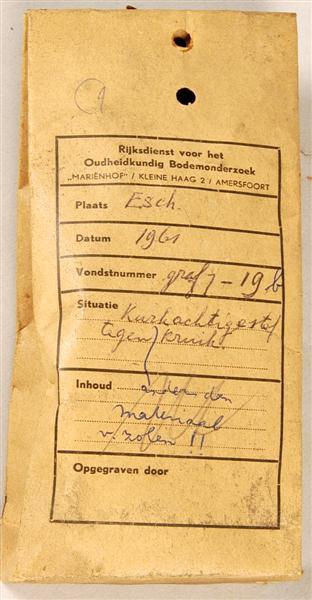 1
Rijksdienst voor het
Oudheidkundig Bodemonderzoek
„MARIËNHOF" / KLEINE HAAG 2 / AMERSFOORT
Plaats Esch.
Datum 1961
Vondstnummer graf 7-19b
Situatie Kurkachtige stof
tegen kruik.
Inhoud ander dan
materiaal
v. zolen !!
Opgegraven door